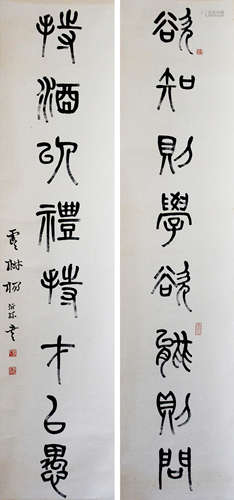 欲知則學欲能則問
持酒以禮持才以愚
楊沂孫書